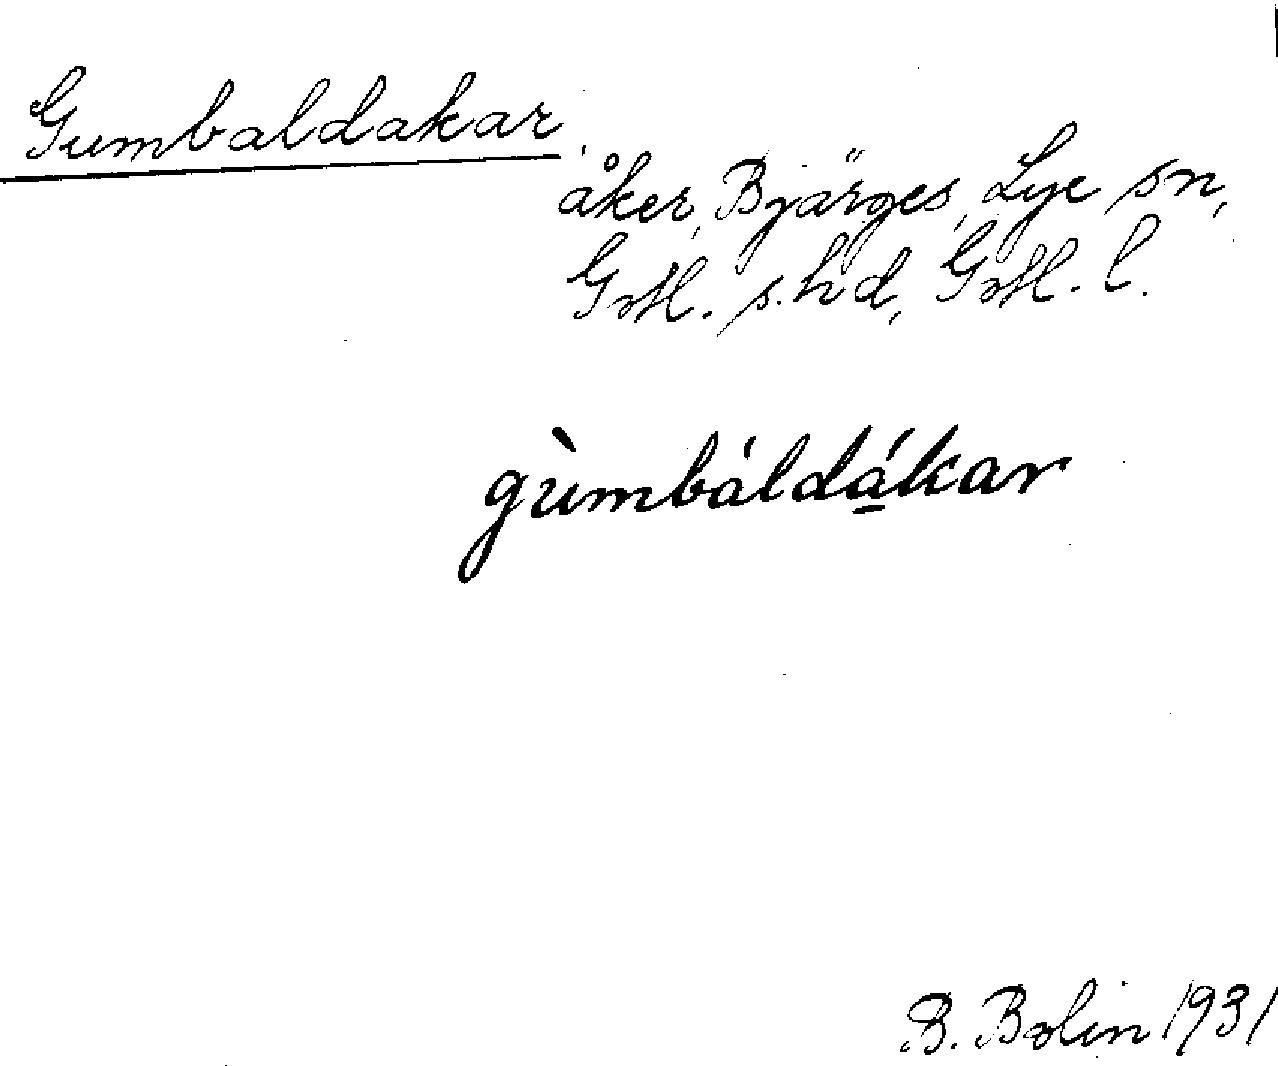 Gumbaldakar,
åker, Bjärges, Lye sn,
Gotl. s. hd, Gotl. l.
gùmbáldá̱kar
B. Bolin 1931